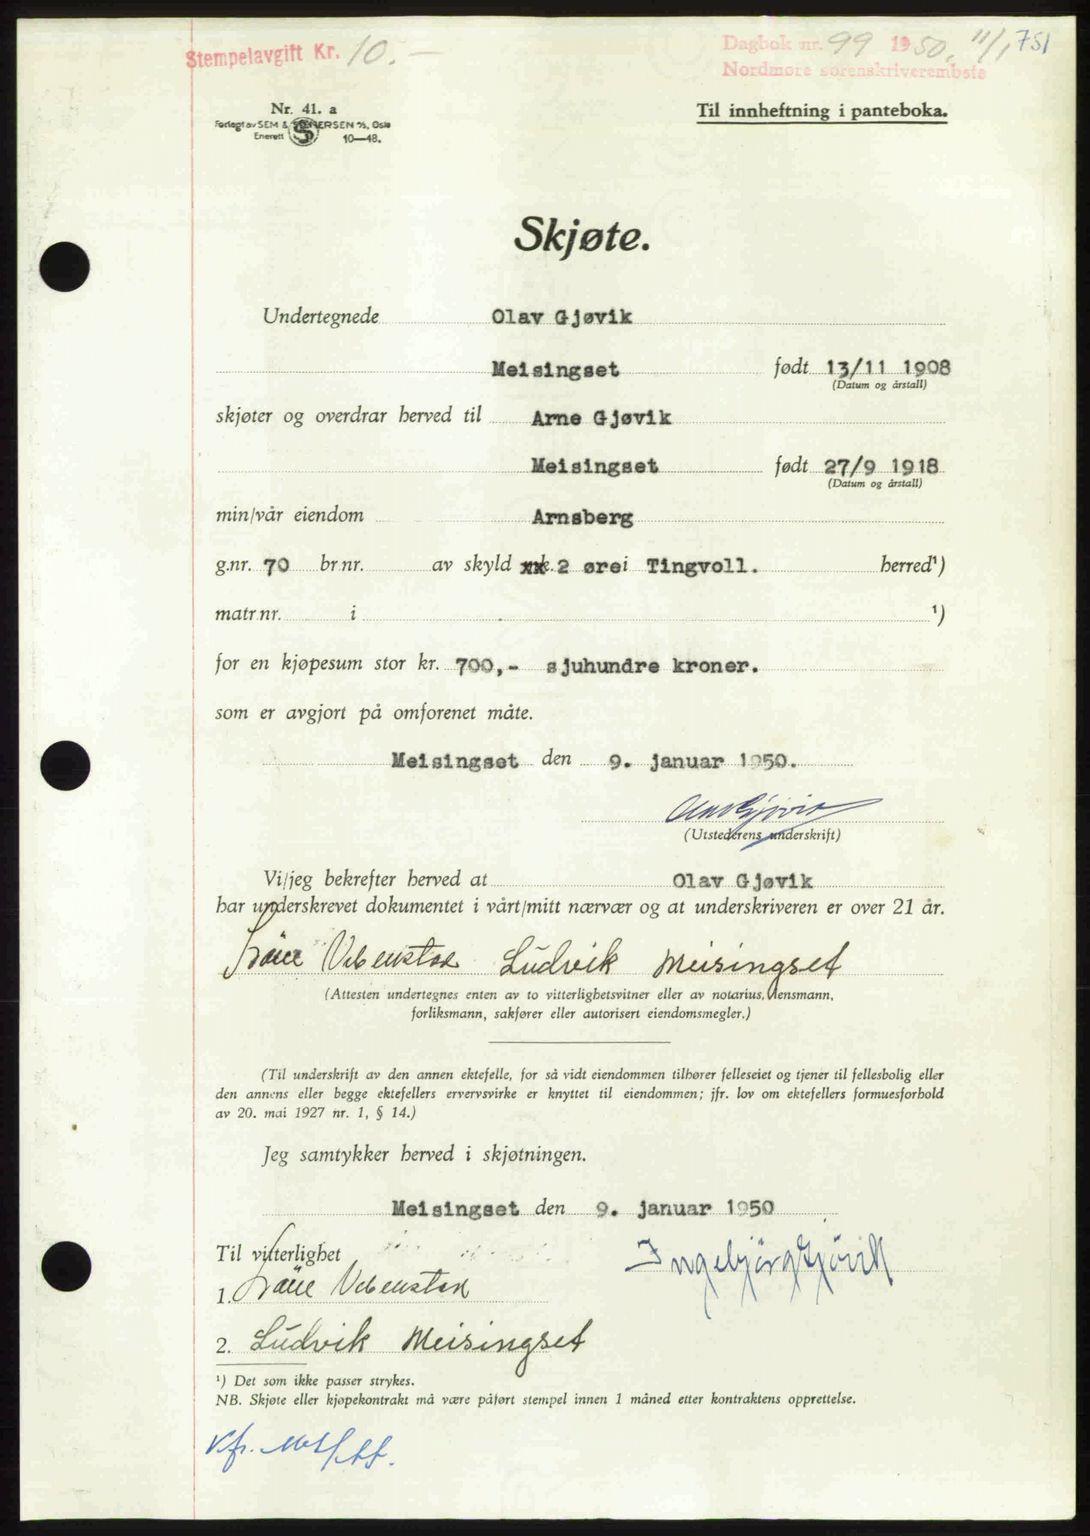 Stempelavgift Kr. 10.-
Dagbok nr. 99 1950. 11/1 751
Nordmøre sorenskriverembete
Nr. 41. a
Forlagt av SEM & STENERSEN A/S, Oslo
Enerett 10—48.
Til innheftning i panteboka.
Skjøte.
Undertegnede Olav Gjøvik
Meisingset født 13/11 1908
(Datum og årstall)
skjøter og overdrar herved til Arne Gjøvik
Meisingset født 27/9 1918
(Datum og årstall)
min/vår eiendom Arnsberg
g.nr. 70 br.nr. av skyld xxk. 2 øre i Tingvoll. herred¹)
matr.nr. i ¹)
for en kjøpesum stor kr. 700,- sjuhundre kroner.
som er avgjort på omforenet måte.
Meisingset den 9. januar 1950.
Olav Gjøvik
(Utstederens underskrift)
Vi/jeg bekrefter herved at Olav Gjøvik
har underskrevet dokumentet i vårt/mitt nærvær og at underskriveren er over 21 år.
Ludvik Meisingset
(Attesten undertegnes enten av to vitterlighetsvitner eller av notarius, lensmann,
forliksmann, sakfører eller autorisert eiendomsmegler.)
(Til underskrift av den annen ektefelle, for så vidt eiendommen tilhører felleseiet og tjener til fellesbolig eller
den annens eller begge ektefellers ervervsvirke er knyttet til eiendommen; jfr. lov om ektefellers formuesforhold
av 20. mai 1927 nr. 1, § 14.)
Jeg samtykker herved i skjøtningen.
Meisingset den 9. januar 1950
Til vitterlighet
Ingebjörg Gjövik
1.
2. Ludvik Meisingset
¹) Det som ikke passer strykes.
NB. Skjøte eller kjøpekontrakt må være påført stempel innen 1 måned etter kontraktens opprettelse.